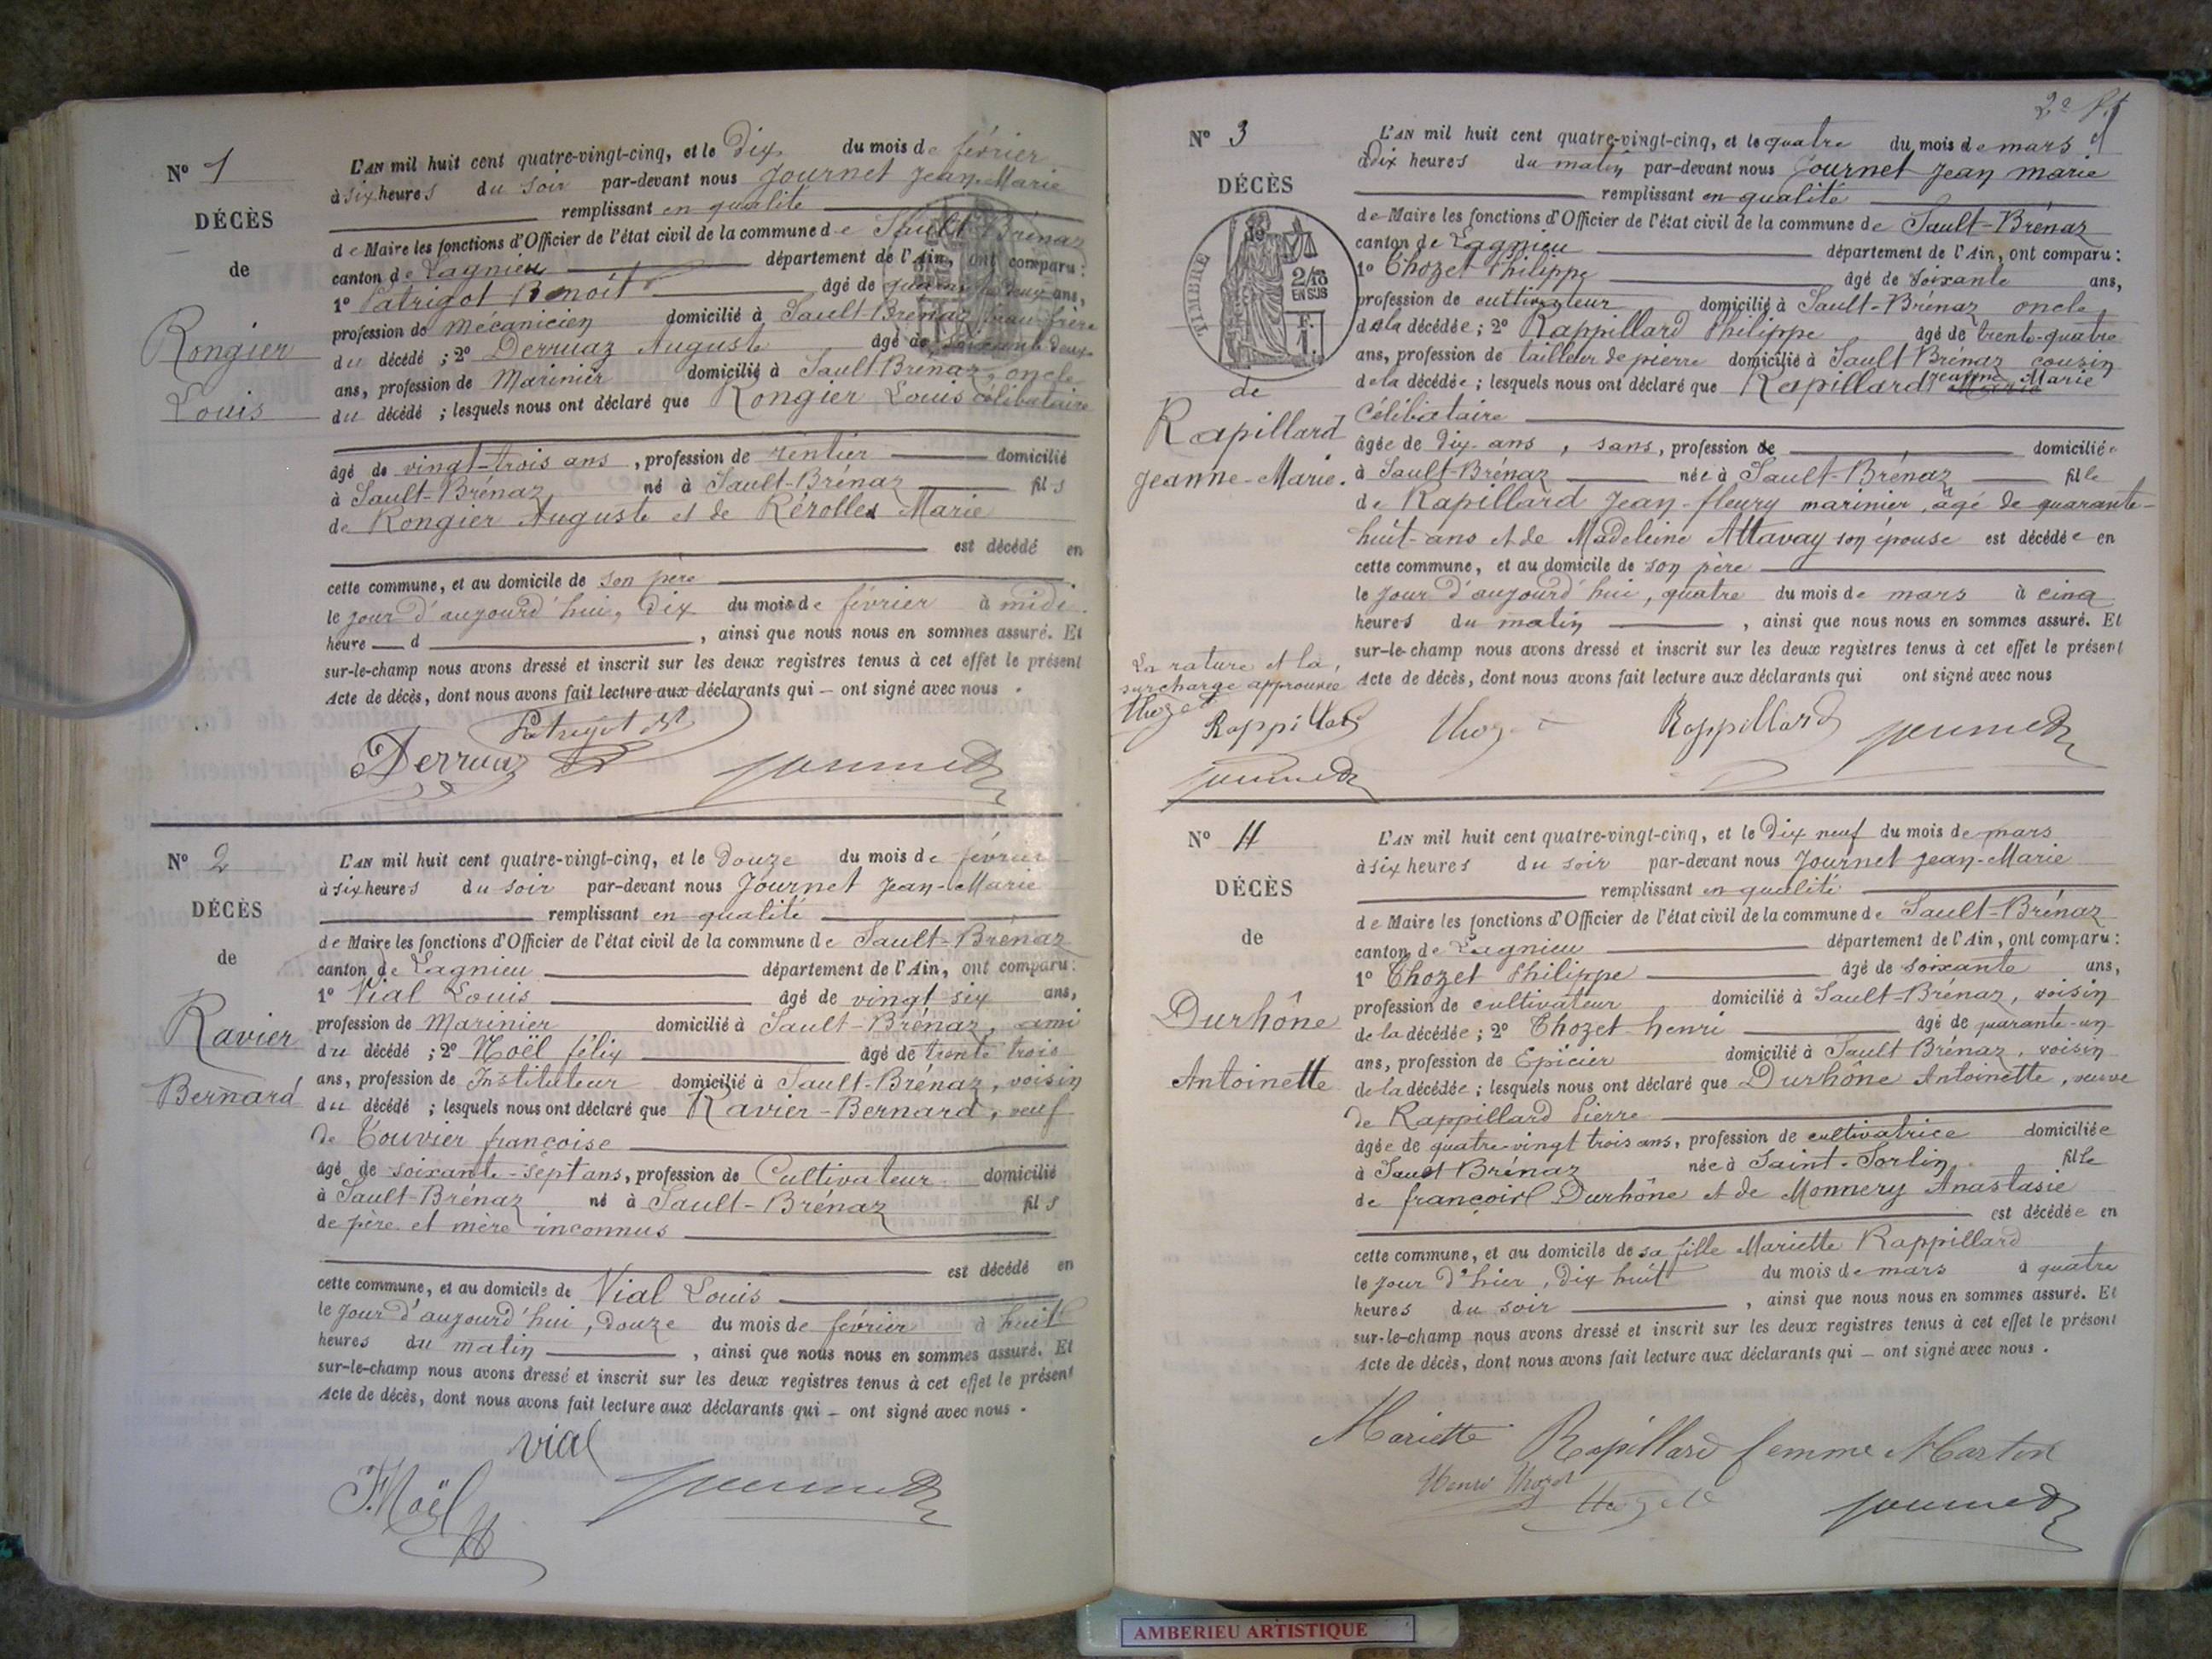 N° 1
DÉCÈS
de
Rongier
Louis
L'AN mil huit cent quatre-vingt-cinq, et le Dix du mois de février
à six heures du soir par-devant nous Journet Jean-Marie
remplissant en qualité
de Maire les fonctions d'Officier de l'état civil de la commune de Sault-Brénaz
canton de Lagnieu département de l'Ain, ont comparu :
1° Patrigot Benoit âgé de quarante deux ans,
profession de mécanicien domicilié à Sault-Brénaz, beau-frère
du décédé ; 2° Derruaz Auguste âgé de soixante deux
ans, profession de Marinier domicilié à Sault Brénaz, oncle
du décédé ; lesquels nous ont déclaré que Rongier Louis célibataire
âgé de vingt-trois ans, profession de rentier domicilié
à Sault-Brénaz né à Sault-Brénaz fils
de Rongier Auguste et de Rérolles Marie
est décédé en
cette commune, et au domicile de son père
le jour d'aujourd'hui, dix du mois de février à midi.
heure d , ainsi que nous nous en sommes assuré. Et
sur-le-champ nous avons dressé et inscrit sur les deux registres tenus à cet effet le présent
Acte de décès, dont nous avons fait lecture aux déclarants qui – ont signé avec nous .
Patrigot Bt
Derruaz Journet
N° 2
DÉCÈS
de
Ravier
Bernard
L'AN mil huit cent quatre-vingt-cinq, et le douze du mois de février
à six heures du soir par-devant nous Journet Jean-Marie
remplissant en qualité
de Maire les fonctions d'Officier de l'état civil de la commune de Sault-Brénaz
canton de Lagnieu département de l'Ain, ont comparu :
1° Vial Louis âgé de vingt six ans,
profession de Marinier domicilié à Sault-Brénaz, ami
du décédé ; 2° Noël félix âgé de trente trois
ans, profession de Instituteur domicilié à Sault-Brénaz, voisin
du décédé ; lesquels nous ont déclaré que Ravier-Bernard, veuf
de Touvier françoise
âgé de soixante-sept ans, profession de Cultivateur domicilié
à Sault-Brénaz né à Sault-Brénaz fils
de père et mère inconnus
est décédé en
cette commune, et au domicile de Vial Louis
le jour d'aujourd'hui, douze du mois de février à huit
heures du matin , ainsi que nous nous en sommes assuré. Et
sur-le-champ nous avons dressé et inscrit sur les deux registres tenus à cet effet le présent
Acte de décès, dont nous avons fait lecture aux déclarants qui – ont signé avec nous .
Vial
F. Noël Journet
2e ft
N° 3
DÉCÈS
TIMBRE
2/10
EN SUS
F.
1.
de
Rapillard
Jeanne-Marie.
L'AN mil huit cent quatre-vingt-cinq, et le quatre du mois de mars
à Dix heures du matin par-devant nous Journet Jean marie
remplissant en qualité
de Maire les fonctions d'Officier de l'état civil de la commune de Sault-Brénaz
canton de Lagnieu département de l'Ain, ont comparu :
1° Thozet Philippe âgé de soixante ans,
profession de cultivateur domicilié à Sault-Brénaz oncle
de la décédée ; 2° Rappillard Philippe âgé de trente-quatre
ans, profession de tailleur de pierre domicilié à Sault Brénaz cousin
de la décédée ; lesquels nous ont déclaré que Rapillard Jeanne Marie
Célibataire
âgée de dix ans, sans, profession de domiciliée
à Sault-Brénaz née à Sault-Brénaz fille
de Rapillard Jean-fleury marinier, âgé de quarante-
huit-ans et de Madeleine Attavay son épouse est décédée en
cette commune, et au domicile de son père
le jour d'aujourd'hui, quatre du mois de mars à cinq
heures du matin , ainsi que nous nous en sommes assuré. Et
sur-le-champ nous avons dressé et inscrit sur les deux registres tenus à cet effet le présent
Acte de décès, dont nous avons fait lecture aux déclarants qui ont signé avec nous
La rature et la
surcharge approuvée
Thozet
Rappillard Thozet Rappillard Journet
Journet
N° 4
DÉCÈS
de
Durhône
Antoinette
L'AN mil huit cent quatre-vingt-cinq, et le Dix neuf du mois de mars
à six heures du soir par-devant nous Journet Jean-Marie
remplissant en qualité
de Maire les fonctions d'Officier de l'état civil de la commune de Sault-Brénaz
canton de Lagnieu département de l'Ain, ont comparu :
1° Thozet Philippe âgé de soixante ans,
profession de cultivateur domicilié à Sault-Brénaz, voisin
de la décédée ; 2° Thozet henri âgé de quarante-un
ans, profession de Epicier domicilié à Sault Brénaz, voisin
de la décédée ; lesquels nous ont déclaré que Durhône Antoinette, veuve
de Rappillard Pierre
âgée de quatre-vingt trois ans, profession de cultivatrice domiciliée
à Sault Brénaz née à Saint-Sorlin fille
de françois Durhône et de Monnery Anastasie
est décédée en
cette commune, et au domicile de sa fille Mariette Rappillard
le jour d'hier, dix huit du mois de mars à quatre
heures du soir , ainsi que nous nous en sommes assuré. Et
sur-le-champ nous avons dressé et inscrit sur les deux registres tenus à cet effet le présent
Acte de décès, dont nous avons fait lecture aux déclarants qui – ont signé avec nous .
Mariette Rapillard femme Marton
Henri Thozet Thozet Journet
AMBERIEU ARTISTIQUE